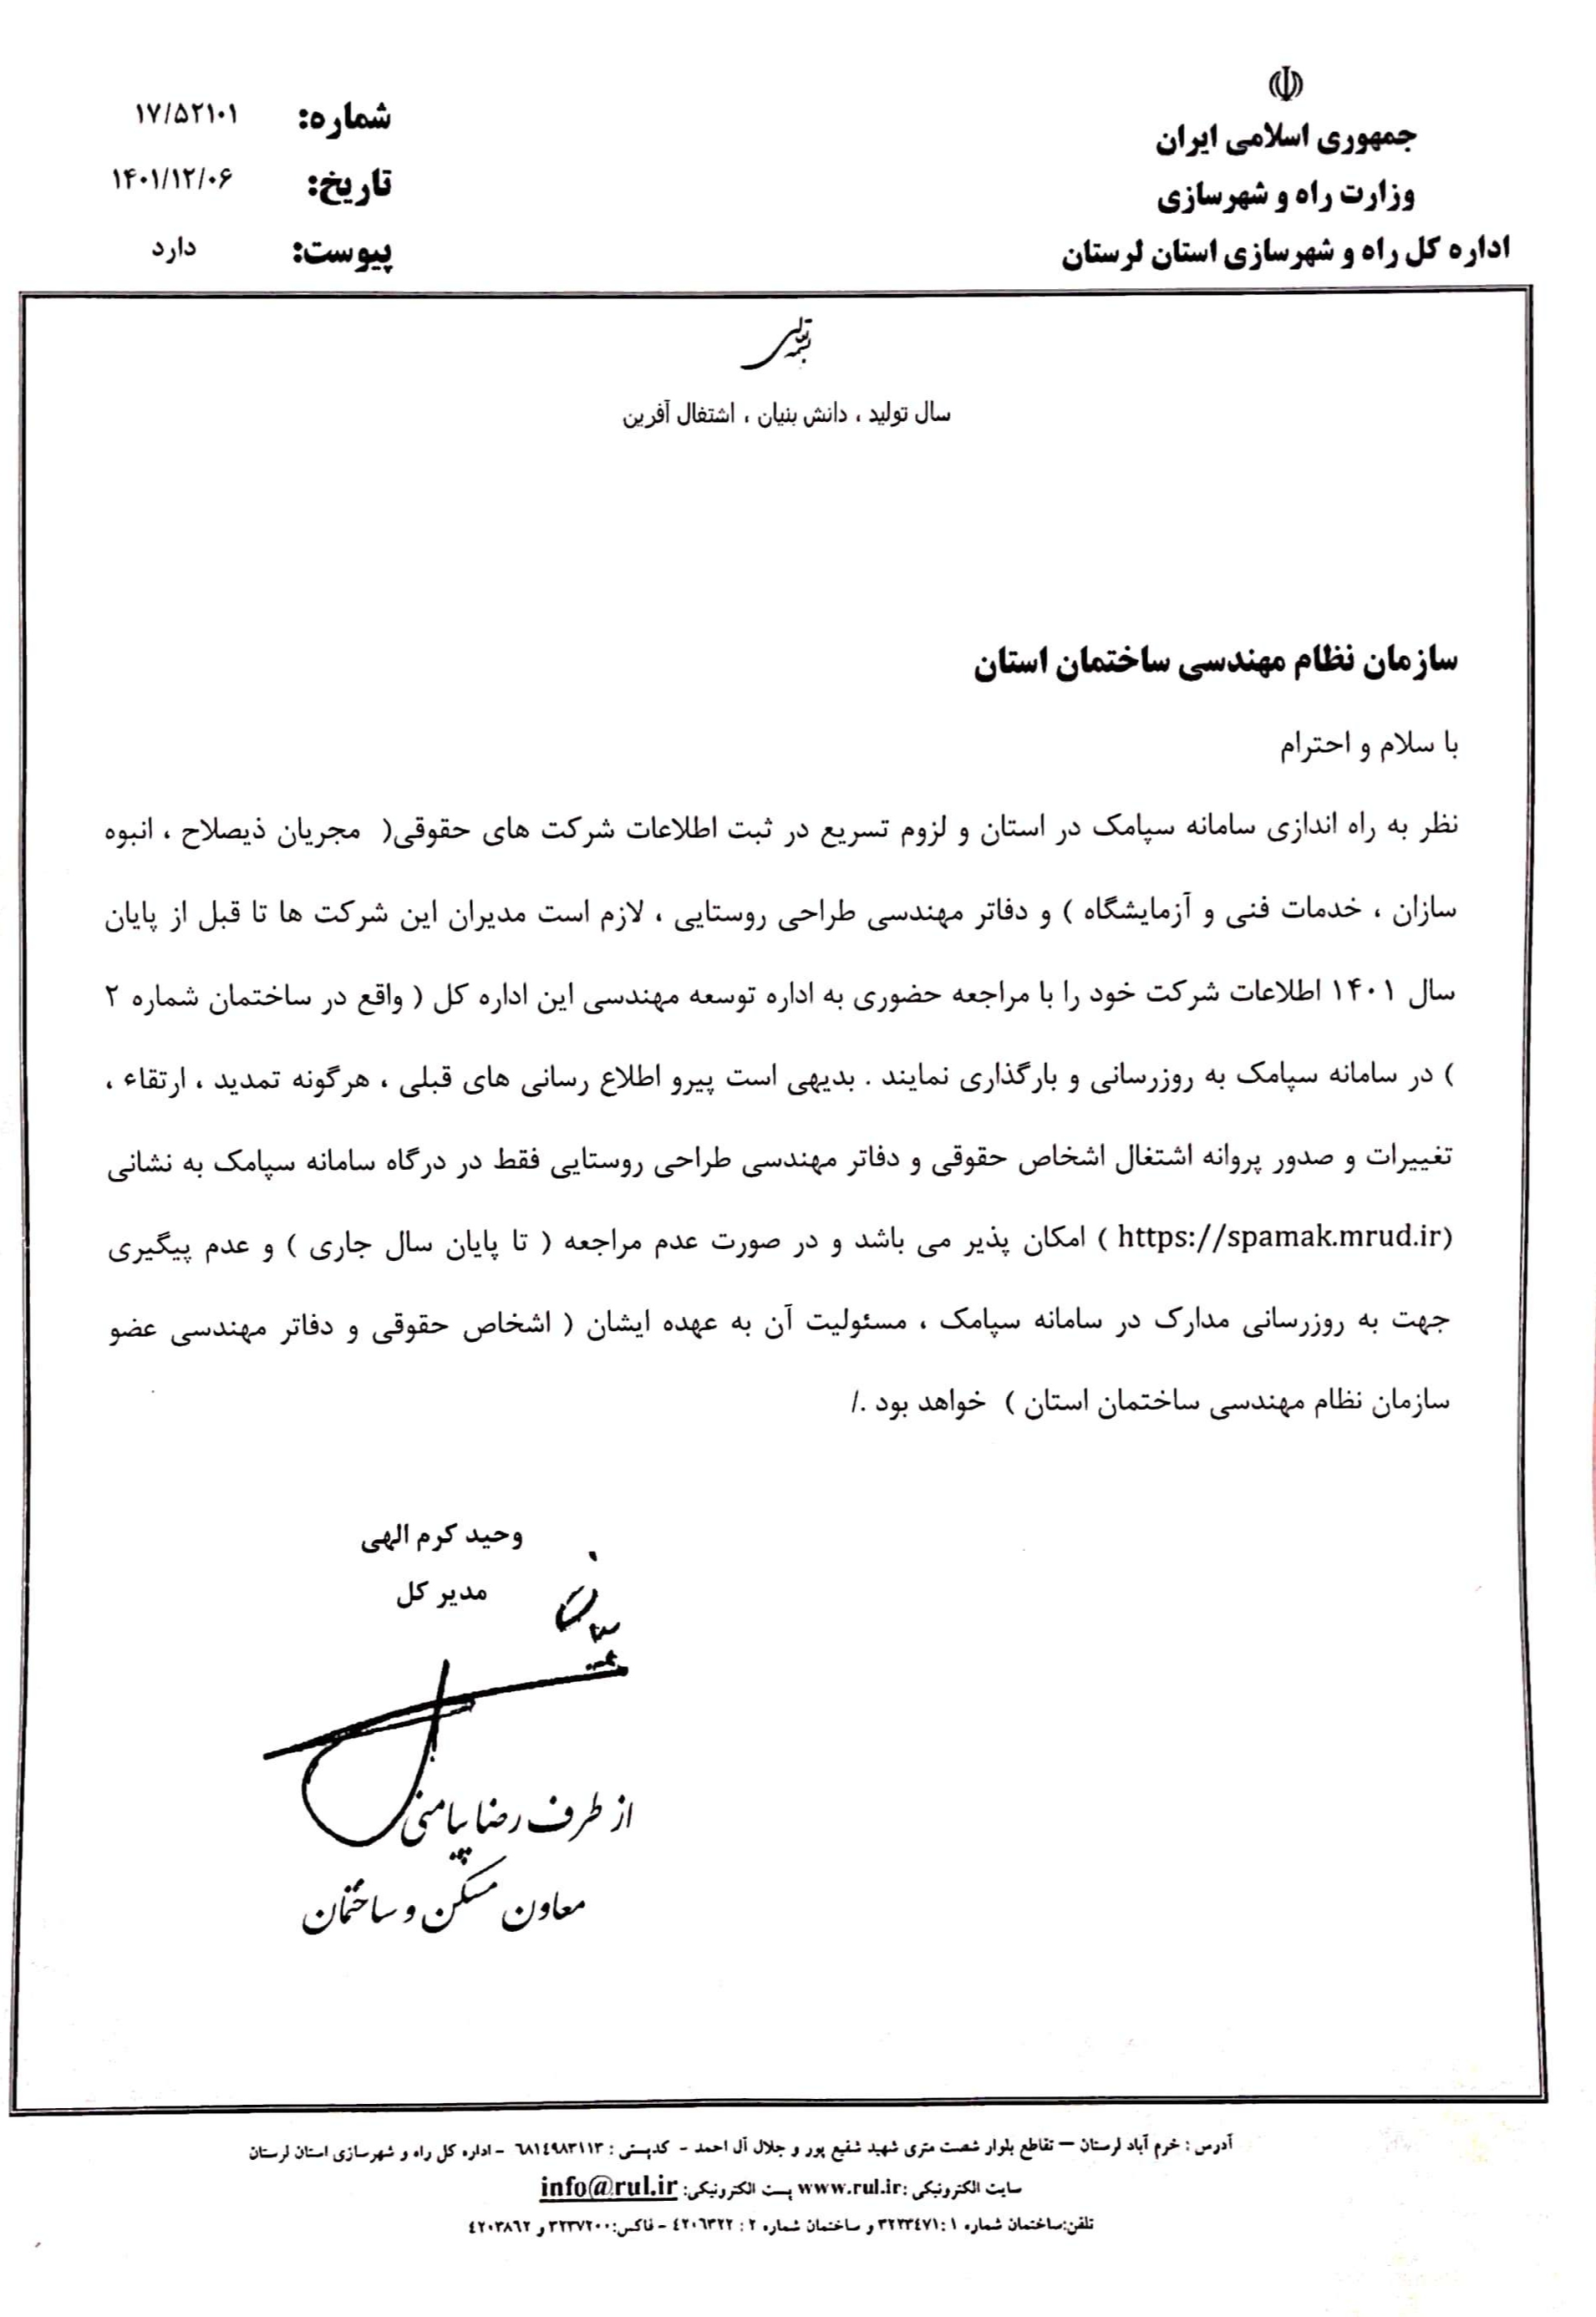 جمهوری اسلامی ایران
وزارت راه و شهرسازی
اداره کل راه و شهرسازی استان لرستان
شماره: ۱۷/۵۲۱۰۱
تاریخ: ۱۴۰۱/۱۲/۰۶
پیوست: دارد
بسمه تعالی
سال تولید ، دانش بنیان ، اشتغال آفرین
سازمان نظام مهندسی ساختمان استان
با سلام و احترام
نظر به راه اندازی سامانه سپامک در استان و لزوم تسریع در ثبت اطلاعات شرکت های حقوقی( مجریان ذیصلاح ، انبوه
سازان ، خدمات فنی و آزمایشگاه ) و دفاتر مهندسی طراحی روستایی ، لازم است مدیران این شرکت ها تا قبل از پایان
سال ۱۴۰۱ اطلاعات شرکت خود را با مراجعه حضوری به اداره توسعه مهندسی این اداره کل ( واقع در ساختمان شماره ۲
) در سامانه سپامک به روزرسانی و بارگذاری نمایند . بدیهی است پیرو اطلاع رسانی های قبلی ، هرگونه تمدید ، ارتقاء ،
تغییرات و صدور پروانه اشتغال اشخاص حقوقی و دفاتر مهندسی طراحی روستایی فقط در درگاه سامانه سپامک به نشانی
(https://spamak.mrud.ir ) امکان پذیر می باشد و در صورت عدم مراجعه ( تا پایان سال جاری ) و عدم پیگیری
جهت به روزرسانی مدارک در سامانه سپامک ، مسئولیت آن به عهده ایشان ( اشخاص حقوقی و دفاتر مهندسی عضو
سازمان نظام مهندسی ساختمان استان ) خواهد بود ./
وحید کرم الهی
مدیر کل
از طرف رضا پیامنی
معاون مسکن و ساختمان
آدرس : خرم آباد لرستان – تقاطع بلوار شصت متری شهید شفیع پور و جلال آل احمد - کدپستی : ٦٨١٤٩٨٣١١٣ - اداره کل راه و شهرسازی استان لرستان
سایت الکترونیکی :www.rul.ir پست الکترونیکی: info@rul.ir
تلفن:ساختمان شماره ١ :٣٢٣٣٤٧١ و ساختمان شماره ٢ : ٤٢٠٦٣٢٢ - فاکس:٣٢٣٧٢٠٠ و ٤٢٠٣٨٦٢